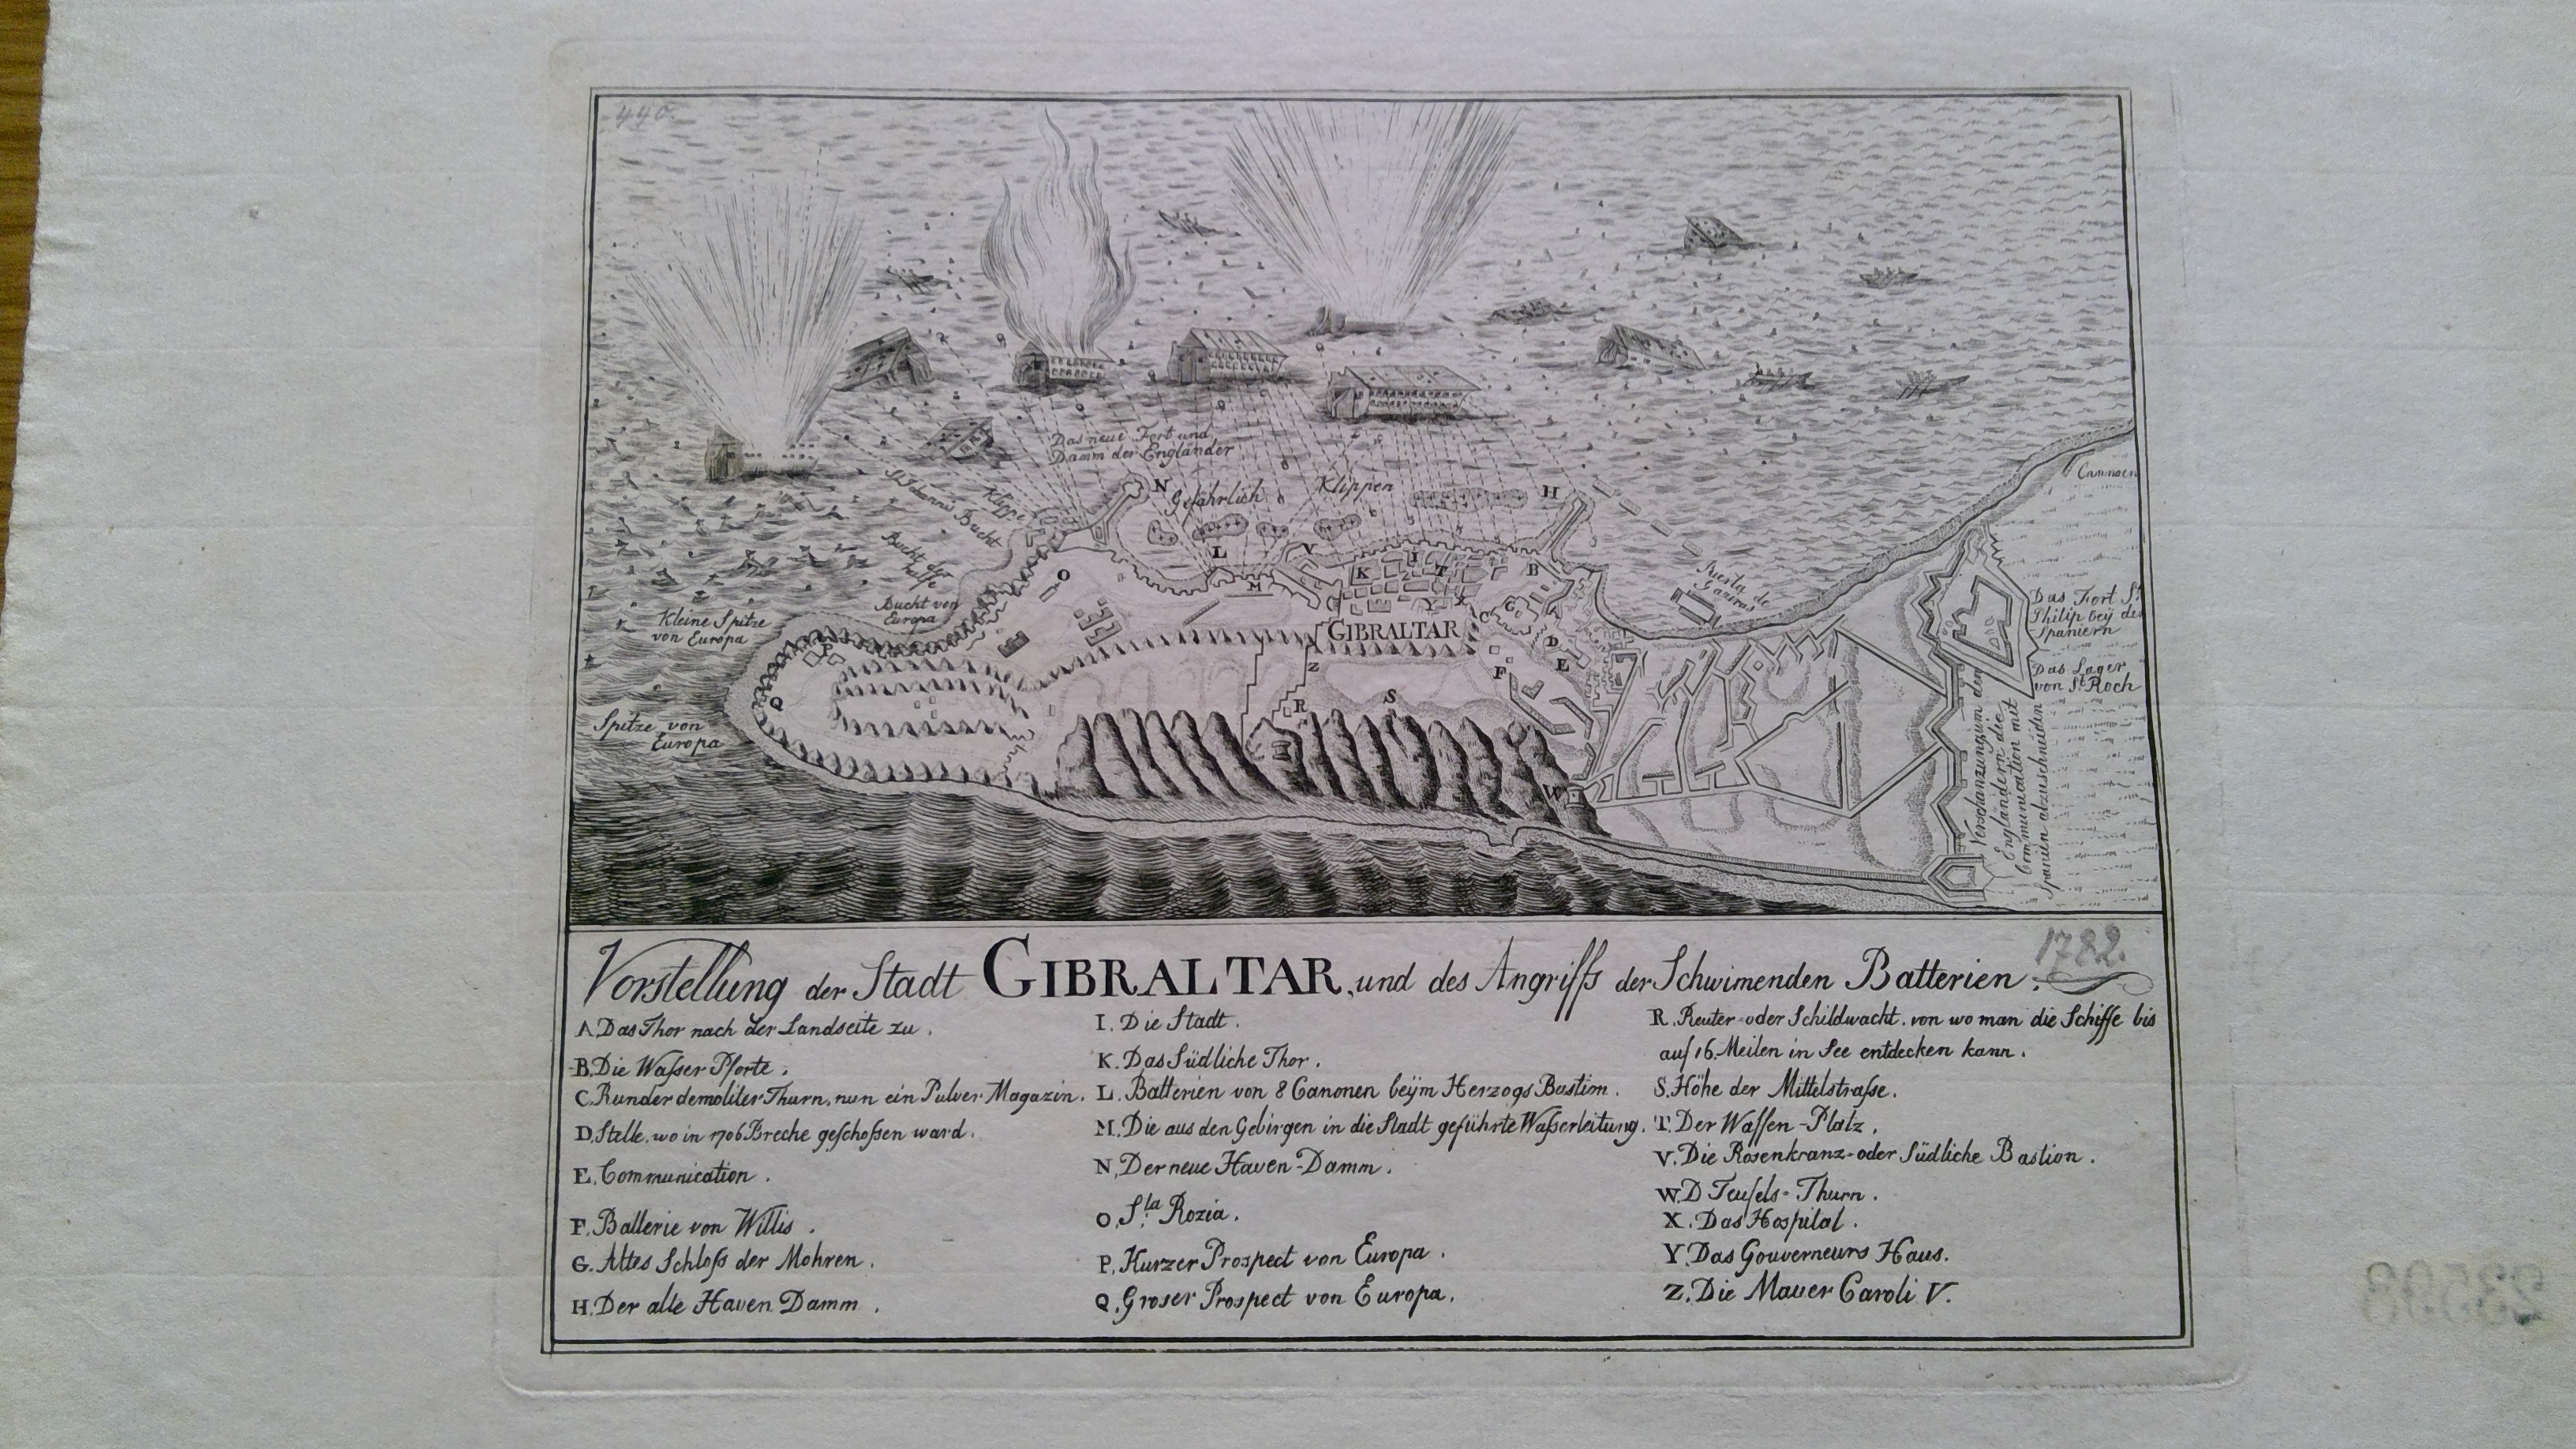 440.
Das neue Fort und
Damm der Engländer
St. Johannis Bucht
Klippe
N
Gefährlich
Klippen
H
Cannoen
Bucht der
hulfe
Bucht von
Europa
Kleine Spitze
von Europa
O
L
M
V
K
I
T
B
Y
X
C
G
A
GIBRALTAR
D
E
F
Puerta de
Das Fort St.
Philip bey den
Spaniern
Das Lager
von St. Roch
P
Q
Z
R
S
W
Spitze von
Europa
Verschanzung um den
Engländern die
Communication mit
Spanien abzuschneiden
Vorstellung der Stadt GIBRALTAR, und des Angriffs der Schwimenden Batterien.
1782.
A. Das Thor nach der Landseite zu.
B. Die Waſser Pforte.
C. Runder demoliter Thurn, nun ein Pulver Magazin.
D. Stelle, wo in 1706 Breche geſchoſsen ward.
E. Communication.
F. Batterie von Willis.
G. Altes Schloſs der Mohren.
H. Der alte Haven Damm.
I. Die Stadt.
K. Das Südliche Thor.
L. Batterien von 8 Canonen beÿm Herzogs Bastion.
M. Die aus den Gebirgen in die Stadt geführte Waſserleitung.
N. Der neue Haven-Damm.
O. Sta. Rozia.
P. Kurzer Prospect von Europa.
Q. Groser Prospect von Europa.
R. Reuter- oder Schildwacht, von wo man die Schiffe bis
auf 16. Meilen in See entdecken kann.
S. Höhe der Mittelstraſse.
T. Der Waffen-Platz.
V. Die Rosenkranz- oder Südliche Bastion.
W. D Teufels-Thurn.
X. Das Hospital.
Y. Das Gouverneurs Haus.
Z. Die Mauer Caroli V.